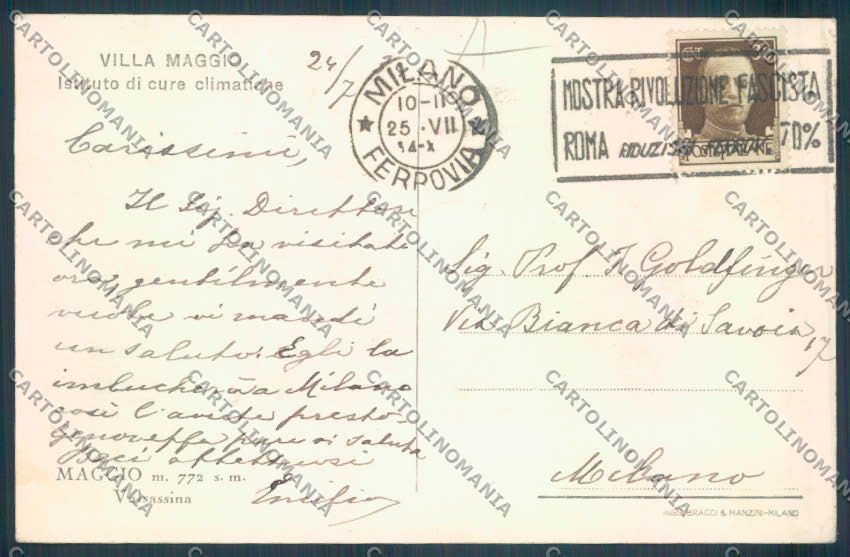 VILLA MAGGIO
Istituto di cure climatiche
24/7
MILANO
10-11
25·VII
34-X
FERROVIA
MOSTRA RIVOLUZIONE FASCISTA
ROMA 70%
POSTE ITALIANE
Carissimi,
Il Sig. Direttore
che mi ha visitato
ora, gentilmente
vuole vi mandi
un saluto. Egli la
imbucherà a Milano
così l'avete presto.
Genoveffa pure vi saluta
Baci affettuosi
Emilio
MAGGIO m. 772 s. m.
Valsassina
Sig. Prof. I. Goldfinger
Via Bianca di Savoia
17
Milano
BRACCI & MANZINI-MILANO
CARTOLINOMANIA